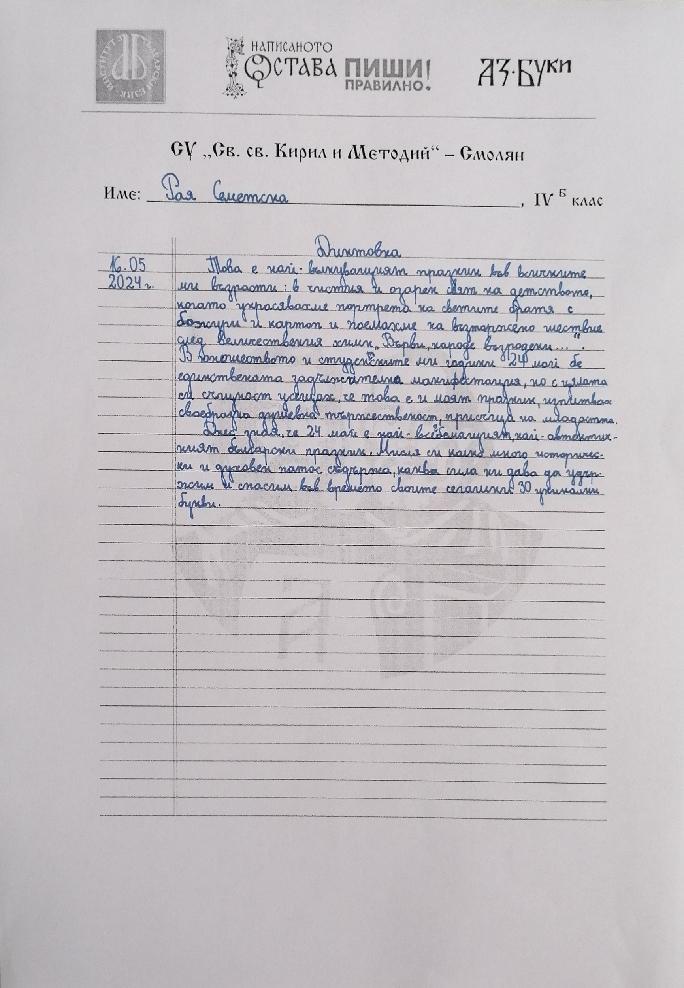 ИНСТИТУТ ЗА БЪЛГАРСКИ ЕЗИК
НАПИСАНОТО
ОСТАВА ПИШИ!
ПРАВИЛНО!
АЗ·БУКИ
СУ „Св. св. Кирил и Методий“ – Смолян
Име: Рая Семетска, IV Б клас
Диктовка
16.05 Това е най-вълнуващият празник във всичките
2024г. ми възрасти: в чистия и озарен свят на детството,
когато украсявахме портрета на светите братя с
божури и картон и поемахме на възторжено шествие
след величествения химн „Върви, народе възродени.....“.
В юношеството и студенските ми години 24 май бе
единствената задължителна манифестация, но с цялата
си същност усещах, че това е и моят празник, изпитвах
своебразна душевна тържественост, присъща на младостта.
Днес зная, че 24 май е най-всебългарният, най-автентич-
ният български празник. Мисля си колко много историчес-
ки и духовен патос съдържа, каква сила ни дава да удър-
жим и спасим във времето своите сегашни 30 уникални
букви.